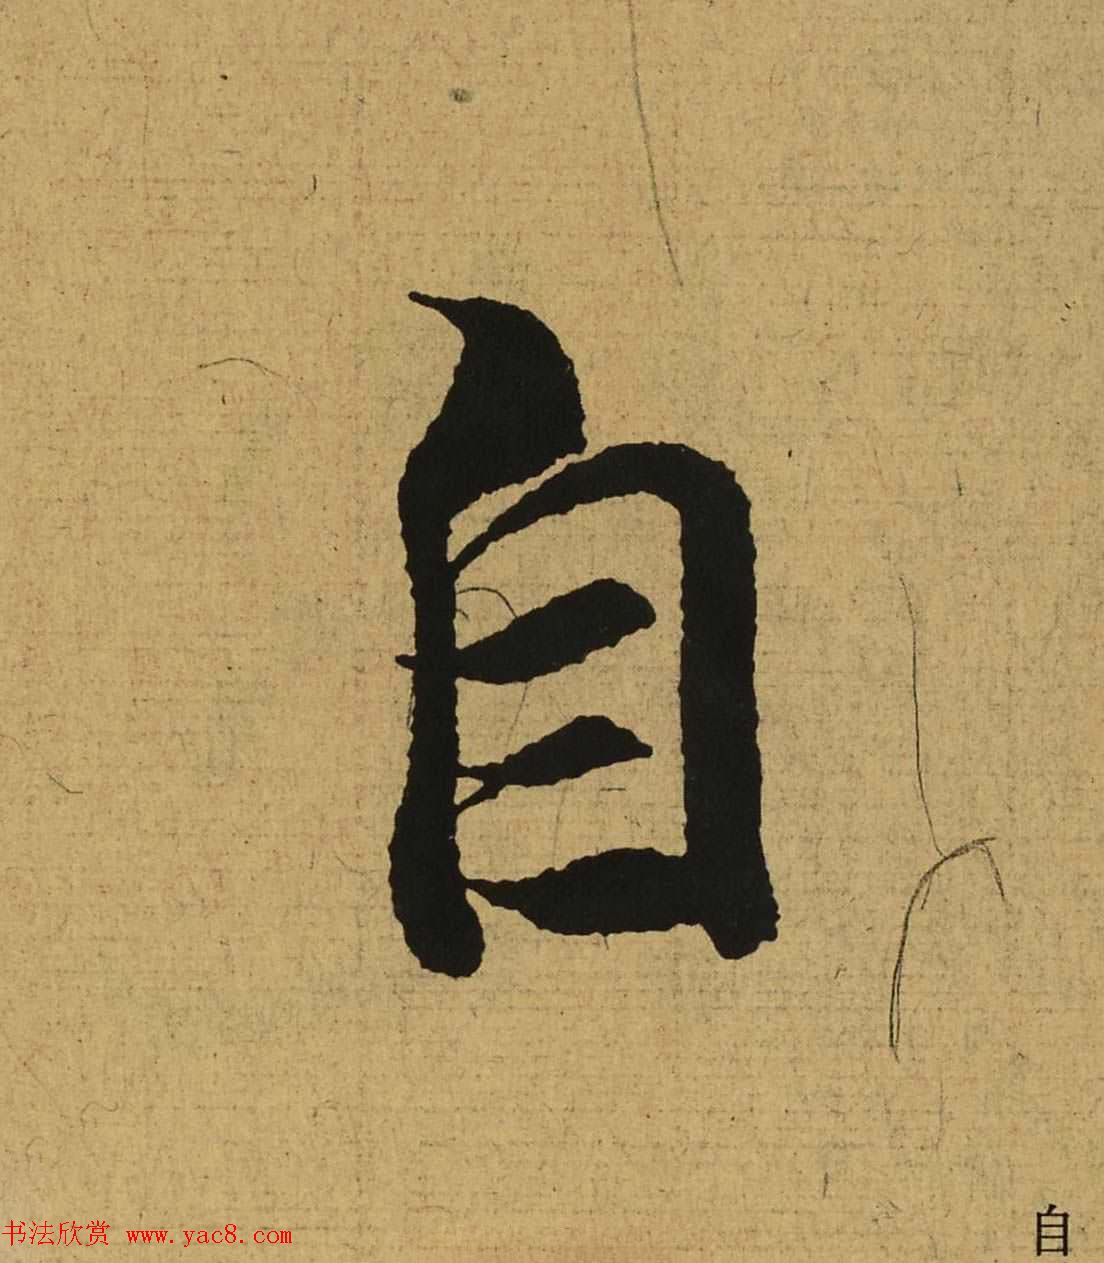 自
书法欣赏 www.yac8.com
自